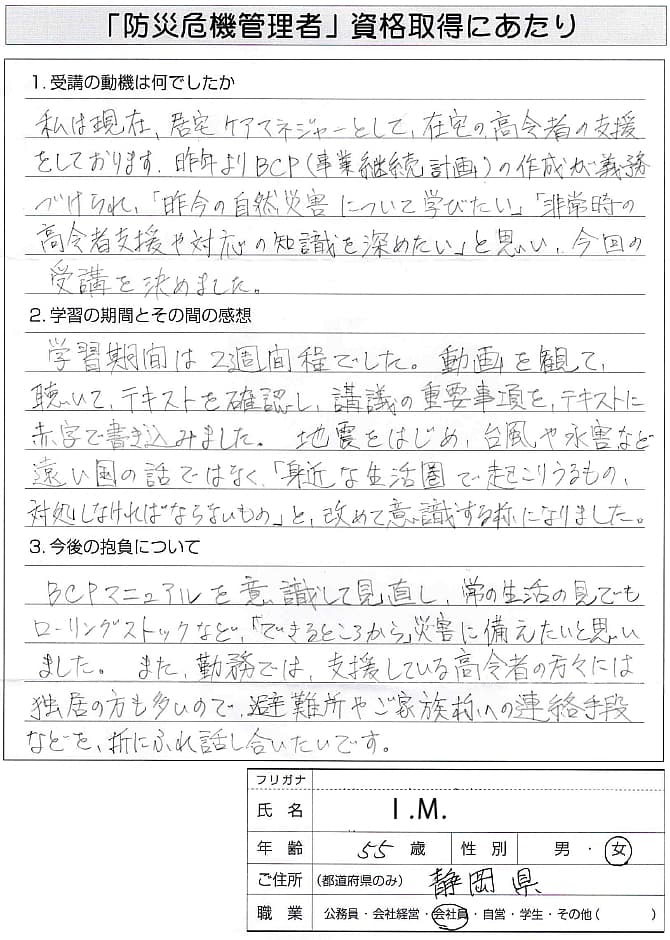 「防災危機管理者」資格取得にあたり
1. 受講の動機は何でしたか
私は現在、居宅ケアマネジャーとして、在宅の高令者の支援
をしております。昨年よりBCP(事業継続計画)の作成が義務
づけられ、「昨今の自然災害について学びたい」「非常時の
高令者支援や対応の知識を深めたい」と思い、今回の
受講を決めました。
2. 学習の期間とその間の感想
学習期間は2週間程でした。動画を観て、
聴いて、テキストを確認し、講議の重要事項を、テキストに
赤字で書き込みました。 地震をはじめ、台風や水害など
遠い国の話ではなく、「身近な生活圏で起こりうるもの、
対処しなければならないもの」と、改めて意識する様になりました。
3. 今後の抱負について
BCPマニュアルを意識して見直し、常の生活の見でも
ローリングストックなど、「できるところから」災害に備えたいと思い
ました。 また、勤務では、支援している高令者の方々には
独居の方も多いので、避難所やご家族様への連絡手段
などを、折にふれ話し合いたいです。
フリガナ
氏名 I.M.
年齢 55歳 性別 男・女
ご住所 (都道府県のみ) 静岡県
職業 公務員・会社経営・会社員・自営・学生・その他( )